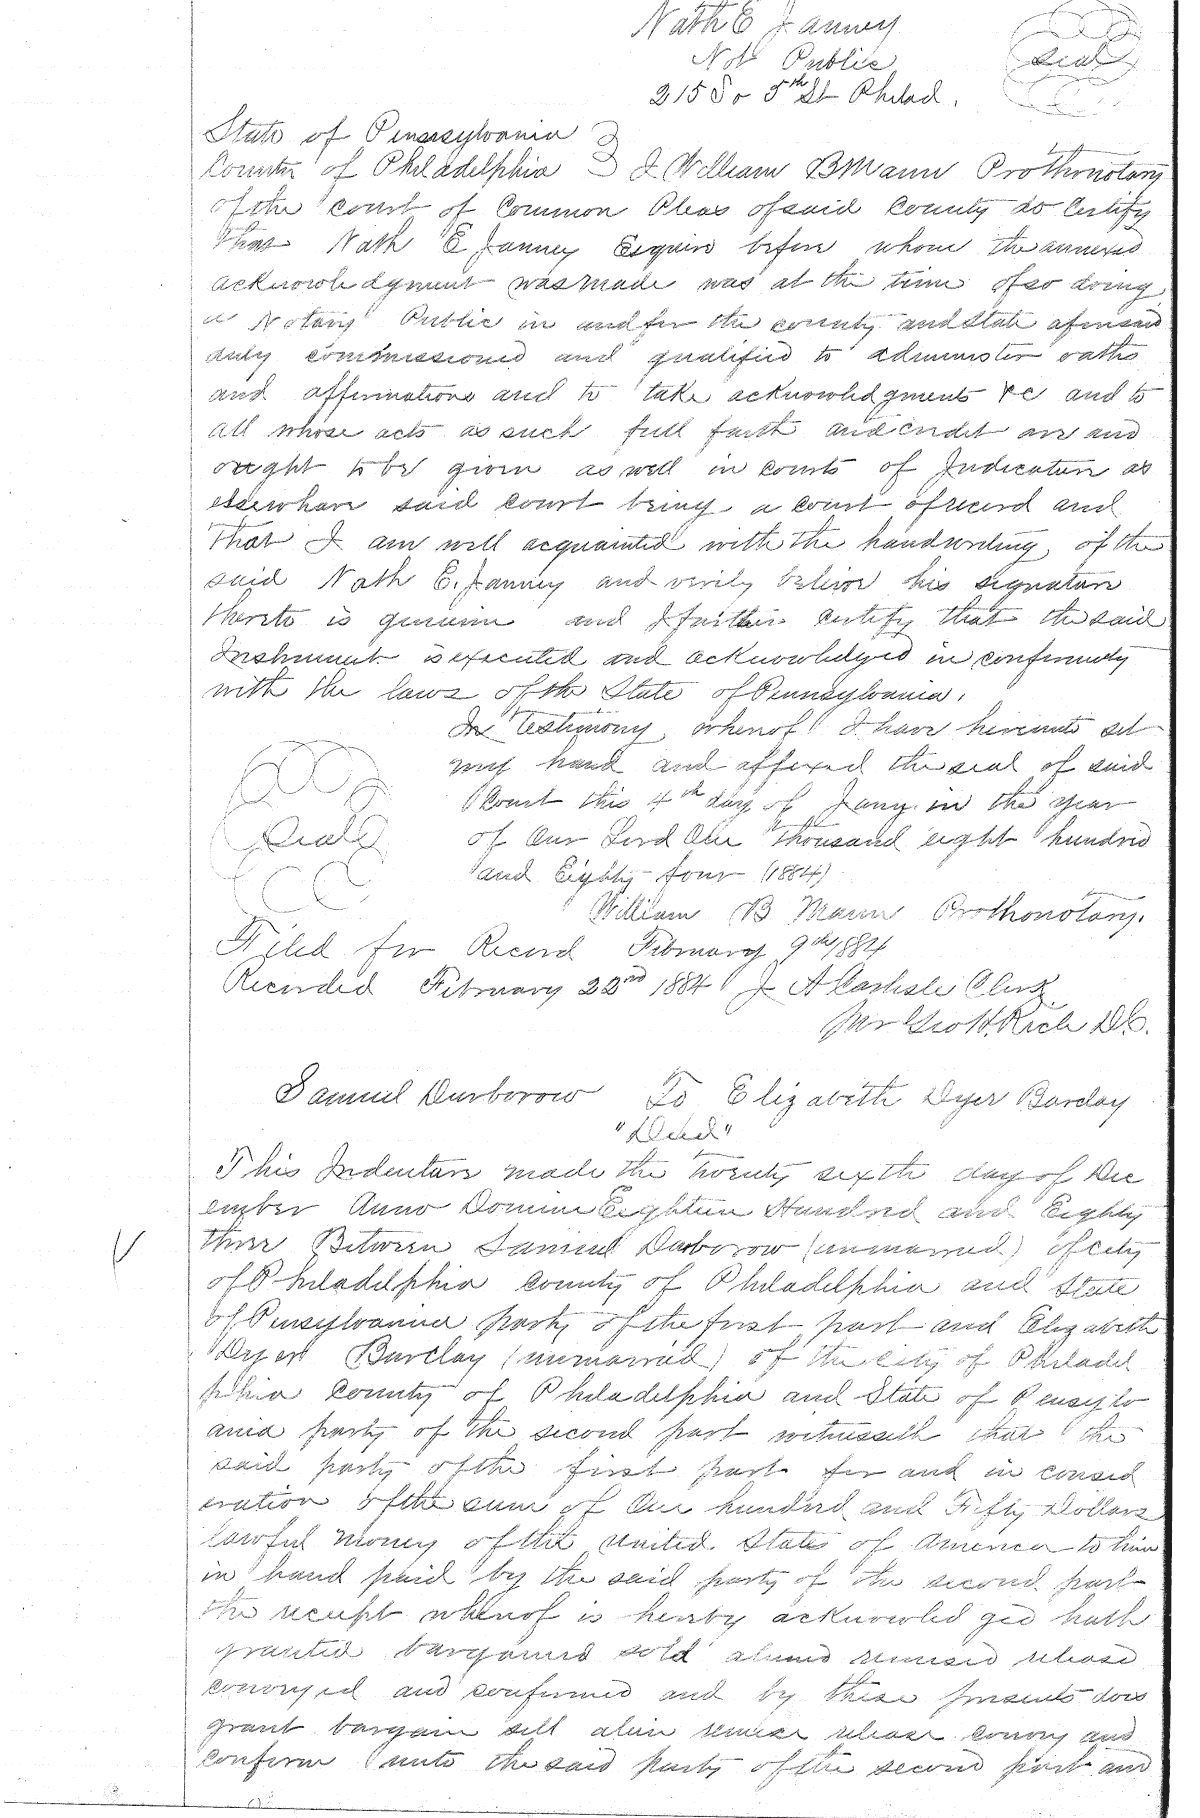 Nath E Janney
Not Public
Seal
215 So 5th St Philad.
State of Pennsylvania
County of Philadelphia } I William B Mann Prothonotary
of the court of Common Pleas of said County do Certify
that Nath E Janney Esquire before whom the annexed
acknowledgment was made was at the time of so doing
a Notary Public in and for the county and State aforesaid
duly commissioned and qualified to administer oaths
and affirmations and to take acknowledgments &c and to
all whose acts as such full faith and credit are and
ought to be given as well in courts of Judicature as
elsewhere said court being a court of record and
that I am well acquainted with the handwriting of the
said Nath E. Janney and verily believe his signature
thereto is genuine and I further certify that the said
Instrument is executed and acknowledged in conformity
with the laws of the State of Pennsylvania.
In Testimony whereof I have hereunto set
my hand and affixed the seal of said
Court this 4th day of Jany. in the year
Seal
of Our Lord One thousand eight hundred
and Eighty four (1884)
William B Mann Prothonotary.
Filed for Record February 9th 1884
Recorded February 22nd 1884 J A Carlisle Clerk
Per Geo H. Rich D.C.
Samuel Durborow To Elizabeth Dyer Barclay
"Deed"
This Indenture made the twenty sixth day of Dec
ember Anno Domini Eighteen Hundred and Eighty
three Between Samuel Durborow (unmarried) of city
of Philadelphia County of Philadelphia and State
of Pensylvania party of the first part and Elizabeth
Dyer Barclay (unmarried) of the city of Philadel
phia County of Philadelphia and State of Pensylv
ania party of the second part witnesseth that the
said party of the first part for and in consid
eration of the sum of One hundred and Fifty Dollars
lawful money of the United States of America to him
in hand paid by the said party of the second part
the receipt whereof is hereby acknowled ged hath
granted bargained sold aliened remised released
conveyed and confirmed and by these presents does
grant bargain sell alien remise release convey and
confirm unto the said party of the second part and